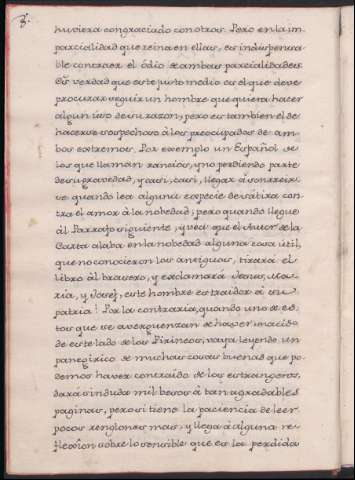 8.
huviera congraciado con otros. Pero en la im-
parcialidad que reina en ellas, es indispensa
ble contraer el ódio de ambas parcialidades.
Es verdad que este justo medio es el que deve
procurar seguir un hombre que quiera hacer
algun uso de su razon; pero es tambien el de
hacerse sospechoso à los preocupados de am-
bos extremos. Por exemplo un Español de
los que llaman rancios, irá perdiendo parte
de su gravedad, y casi, casi llegará à sonreir
se quando lea alguna especie de sátira con
tra el amor à la nobedad; pero quando llegue
al Parrafo siguiente, y vea que el Autor de la
Carta alaba en la nobedad alguna cosa útil,
que no conocieron los antiguos, tirará el
libro al brasero, y exclamará Jesus, Ma-
ria, y Josef, este hombre es traidor à su
patria! Por la contraria, quando uno de es-
tos que se averguenzan de haver nacido
de este lado de los Pirineos, vaya leyendo un
panegirico de muchas cosas buenas que po-
demos haver contraido de los estrangeros,
dará sin duda mil besos à tan agradables
paginas, pero si tiene la paciencia de leer
pocos renglones mas, y llega à alguna re-
flecsion sobre lo sensible que es la perdida